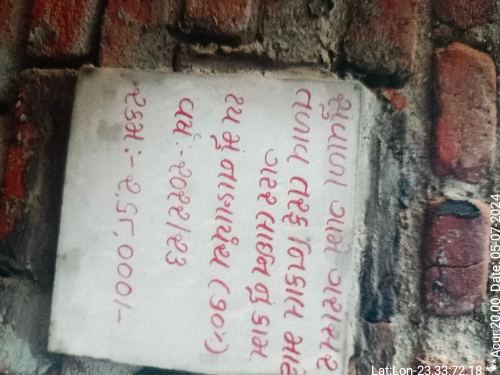 સુવાળા ગામ ગરાસર
તળાવ તરફ નિકાલ માટે
ગટર લાઈન નુ કામ.
૧૫ મું નાણાપંચ (૭૦%)
વર્ષ:- ૨૦૨૨/૨૩
રકમ:- ૨.૬૫,૦૦૦/-
Lat:Lon-23.33:72.18
**Accur:20.00, Date: 05-07-2024